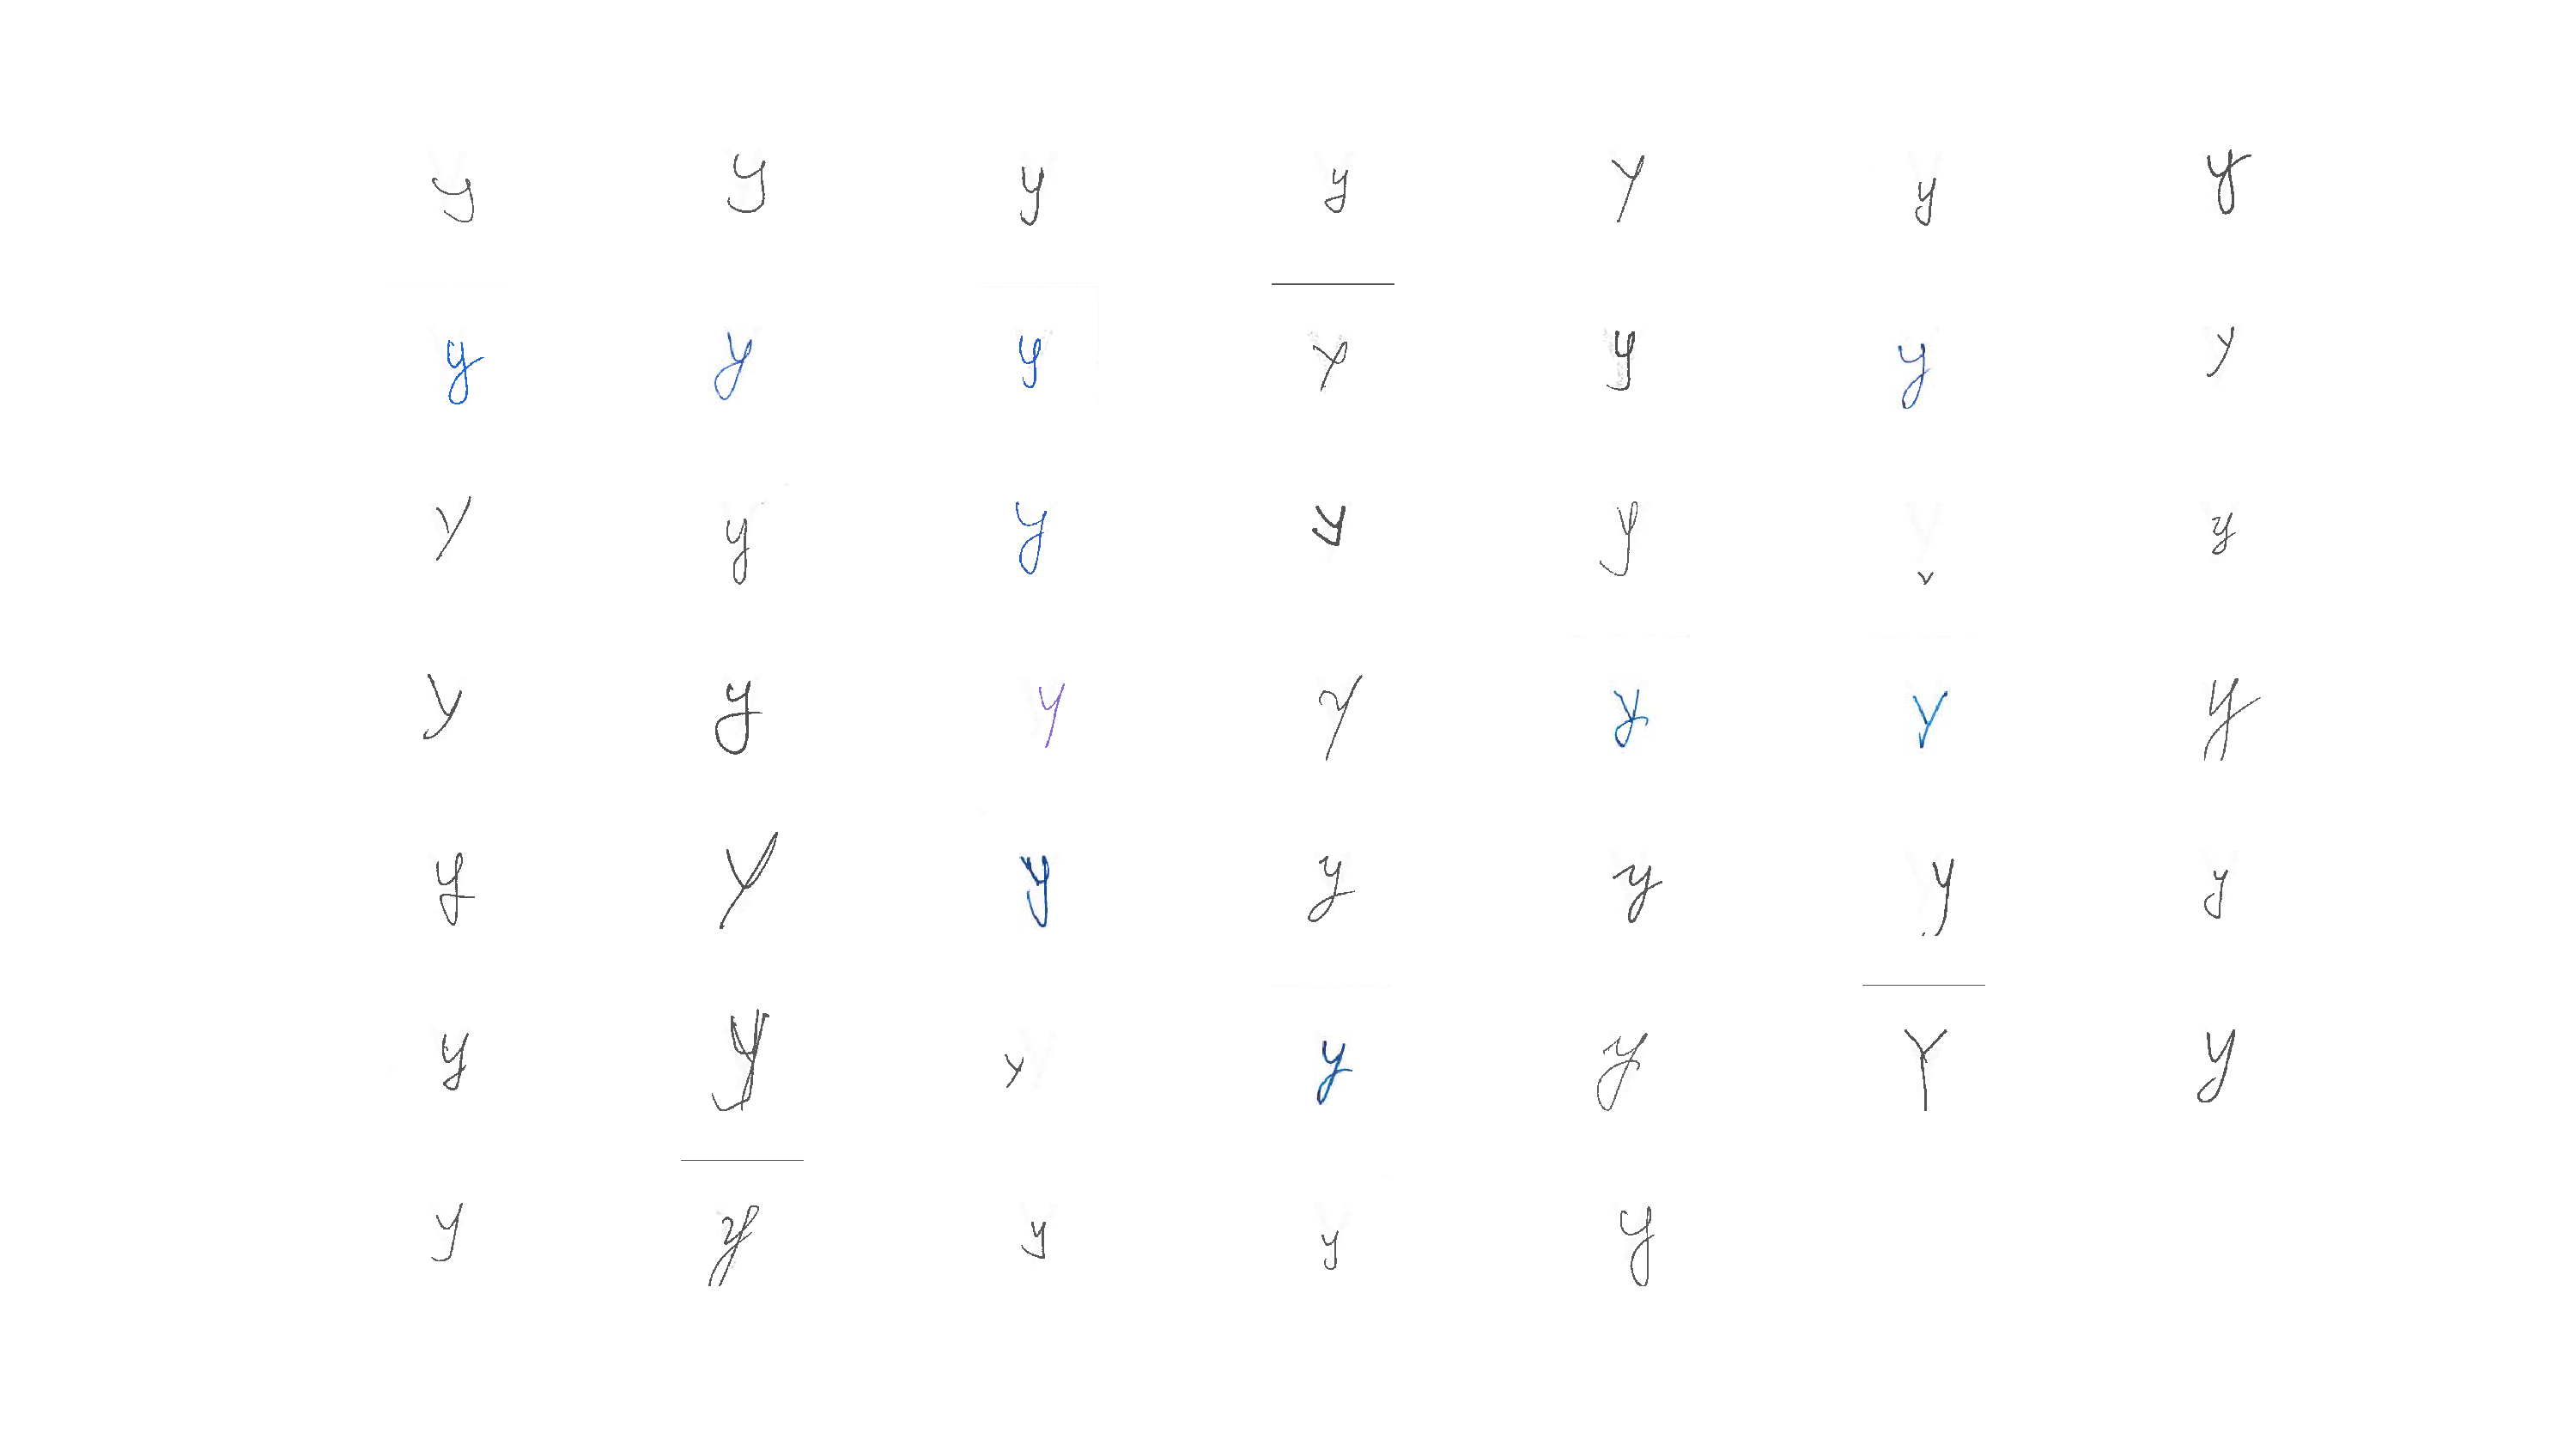 y y y y y y y
y y y y y y y
y y y y y v y
y y y y y y y
y y y y y y y
y y y y y Y y
y y y y y